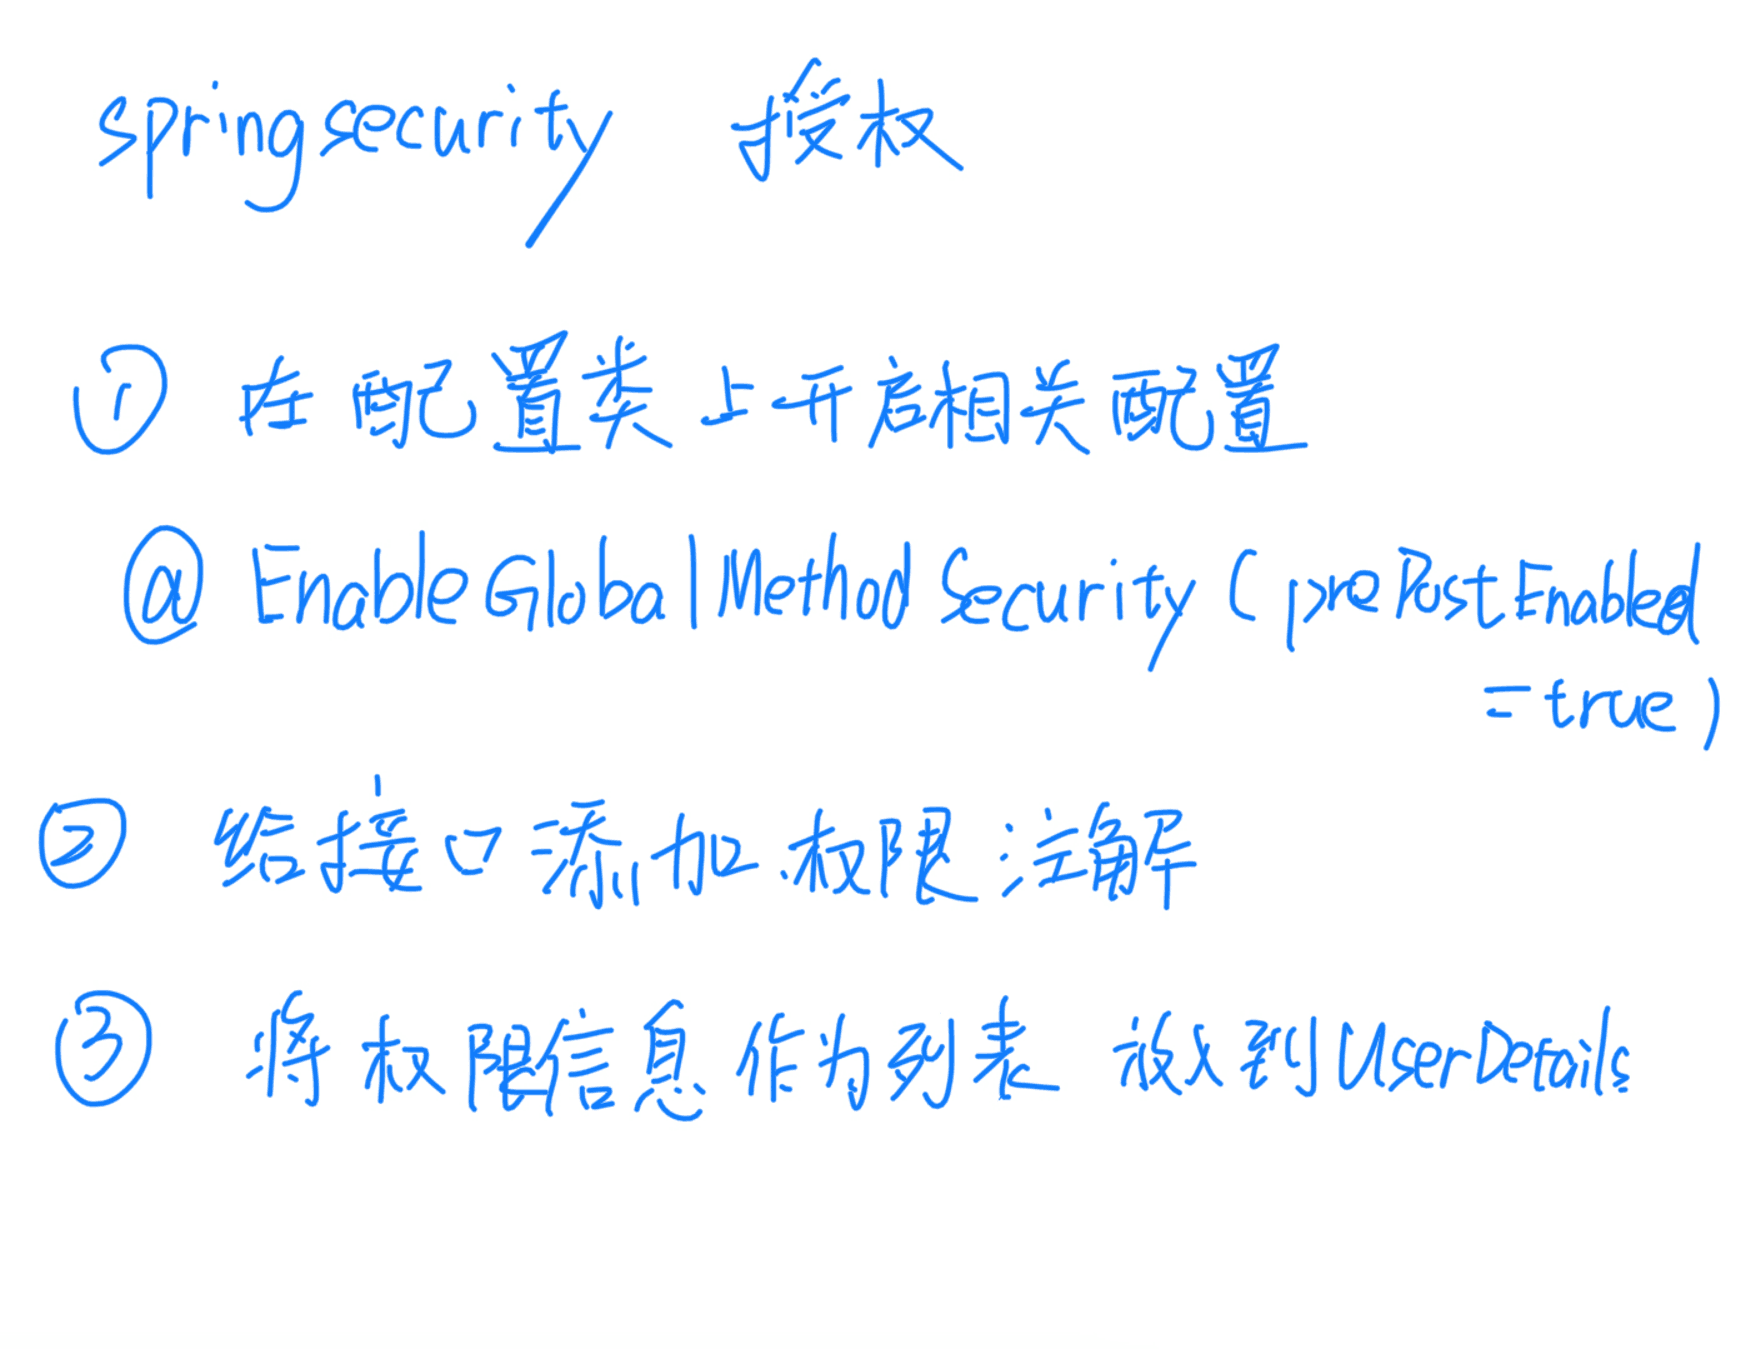 springsecurity 授权
① 在配置类上开启相关配置
@EnableGlobalMethodSecurity(prePostEnabled
=true)
② 给接口添加权限注解
③ 将权限信息作为列表 放到UserDetails